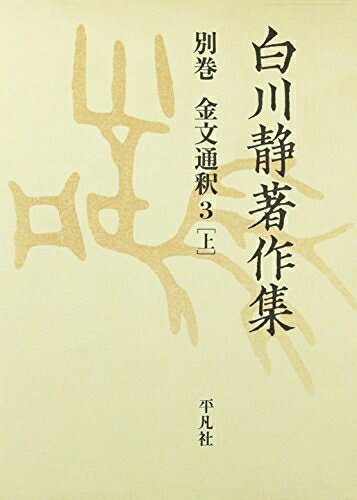 白川静著作集
別巻 金文通釈3[上]
平凡社